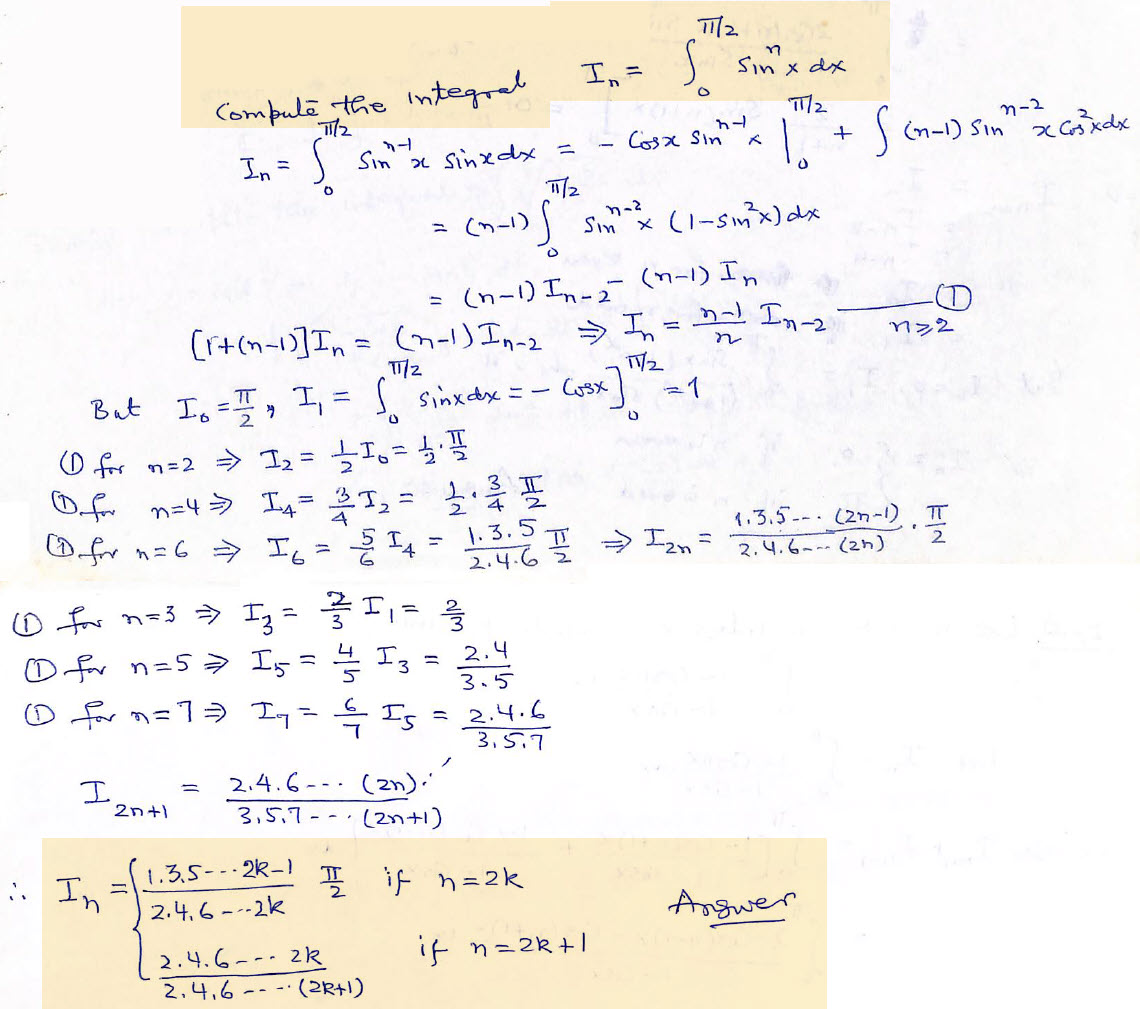 Compute the integral I_n = ∫_0^{π/2} sin^n x dx
I_n = ∫_0^{π/2} sin^{n-1} x sinx dx = - Cosx sin^{n-1} x |_0^{π/2} + ∫ (n-1) sin^{n-2} x Cos^2 x dx
= (n-1) ∫_0^{π/2} sin^{n-2} x (1-sin^2 x) dx
= (n-1) I_{n-2} - (n-1) I_n
[1+(n-1)] I_n = (n-1) I_{n-2} ⇒ I_n = \frac{n-1}{n} I_{n-2} ——— ① n≥2
But I_0 = \frac{π}{2}, I_1 = ∫_0^{π/2} sinx dx = - Cosx ]_0^{π/2} = 1
① for n=2 ⇒ I_2 = \frac{1}{2} I_0 = \frac{1}{2} . \frac{π}{2}
① for n=4 ⇒ I_4 = \frac{3}{4} I_2 = \frac{1}{2} . \frac{3}{4} \frac{π}{2}
① for n=6 ⇒ I_6 = \frac{5}{6} I_4 = \frac{1.3.5}{2.4.6} \frac{π}{2} ⇒ I_{2n} = \frac{1.3.5--- (2n-1)}{2.4.6--- (2n)} . \frac{π}{2}
① for n=3 ⇒ I_3 = \frac{2}{3} I_1 = \frac{2}{3}
① for n=5 ⇒ I_5 = \frac{4}{5} I_3 = \frac{2.4}{3.5}
① for n=7 ⇒ I_7 = \frac{6}{7} I_5 = \frac{2.4.6}{3.5.7}
I_{2n+1} = \frac{2.4.6--- (2n)}{3.5.7--- (2n+1)}
∴ I_n = { \frac{1.3.5---2k-1}{2.4.6---2k} \frac{π}{2} if n=2k
\frac{2.4.6--- 2k}{2.4.6---(2k+1)} if n=2k+1
Answer